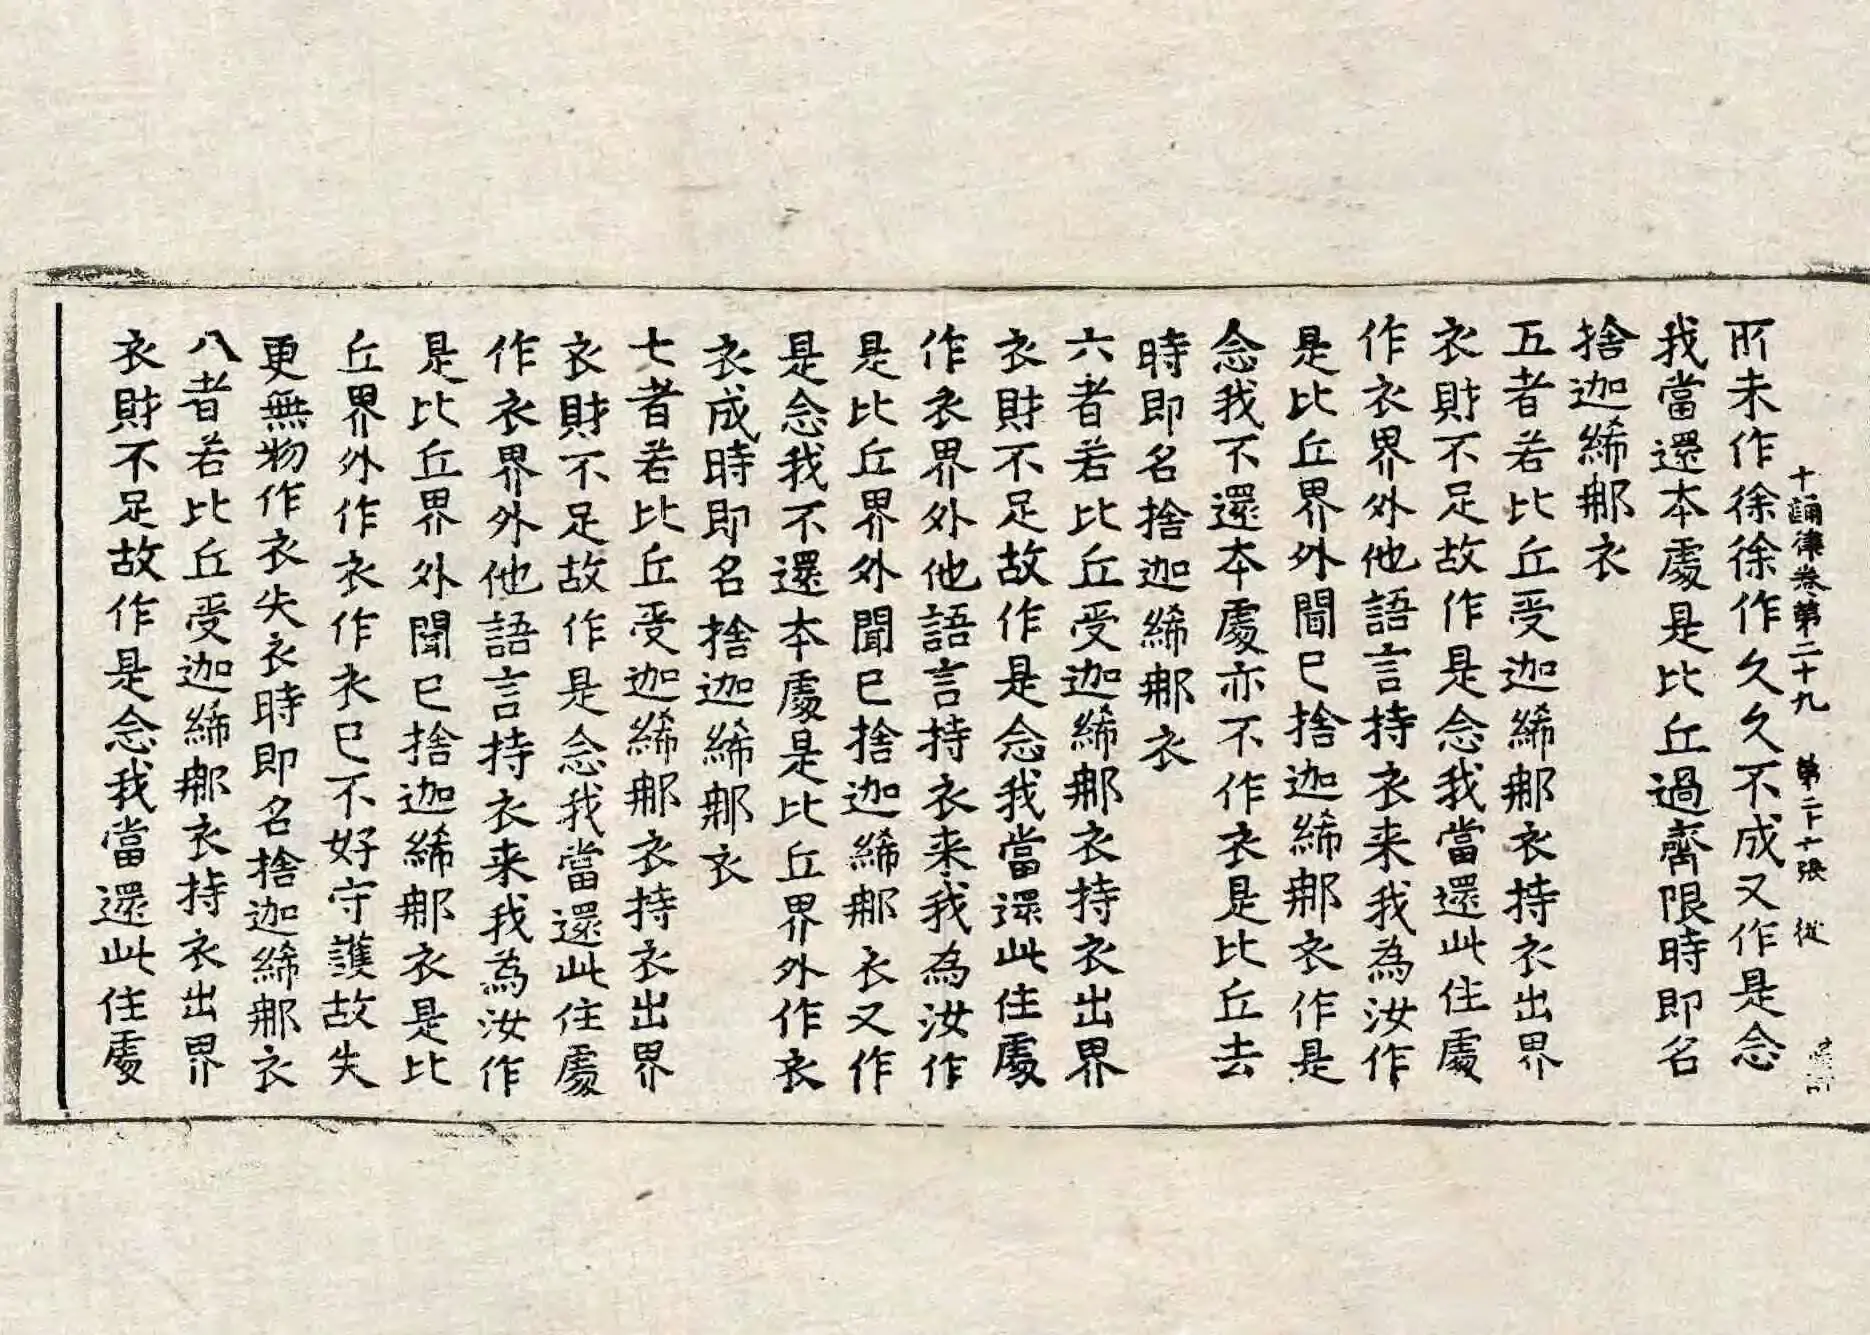 十誦律卷第二十九　第二十張　従
所未作徐徐作久久不成又作是念
我當還本處是比丘過齊限時即名
捨迦絺那衣
五者若比丘受迦絺那衣持衣出界
衣財不足故作是念我當還此住處
作衣界外他語言持衣来我為汝作
是比丘界外聞已捨迦絺那衣作是
念我不還本處亦不作衣是比丘去
時即名捨迦絺那衣
六者若比丘受迦絺那衣持衣出界
衣財不足故作是念我當還此住處
作衣界外他語言持衣来我為汝作
是比丘界外聞已捨迦絺那衣又作
是念我不還本處是比丘界外作衣
衣成時即名捨迦絺那衣
七者若比丘受迦絺那衣持衣出界
衣財不足故作是念我當還此住處
作衣界外他語言持衣来我為汝作
是比丘界外聞已捨迦絺那衣是比
丘界外作衣作衣已不好守護故失
更無物作衣失衣時即名捨迦絺那衣
八者若比丘受迦絺那衣持衣出界
衣財不足故作是念我當還此住處